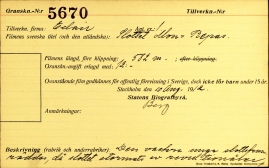 Gransku.-Nr 5670 Tillverkn.-Nr
Tillverkn. firma: Eclair
Filmens svenska titel (och den utländska):
Filmens längd, före klippning: 572 m., efter klippning:
Granskn.-avgift erlagd med
Ovanstående film godkännes för offentlig förevisning i Sverige, dock icke för barn under 15 år.
Stockholm den 10 Aug. 1912
Statens Biografbyrå.
Berg
Anmärkningar:
Beskrivning (rubrik och underrubriker): Den vackra unga slottsfrun
räddas, då slottet stormats av revolutionärer